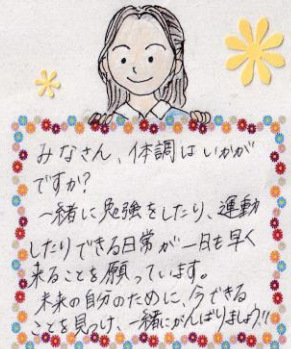 みなさん、体調はいかが
ですか?
一緒に勉強をしたり、運動
したりできる日常が一日も早く
来ることを願っています。
未来の自分のために、今できる
ことを見つけ、一緒にがんばりましょう!!